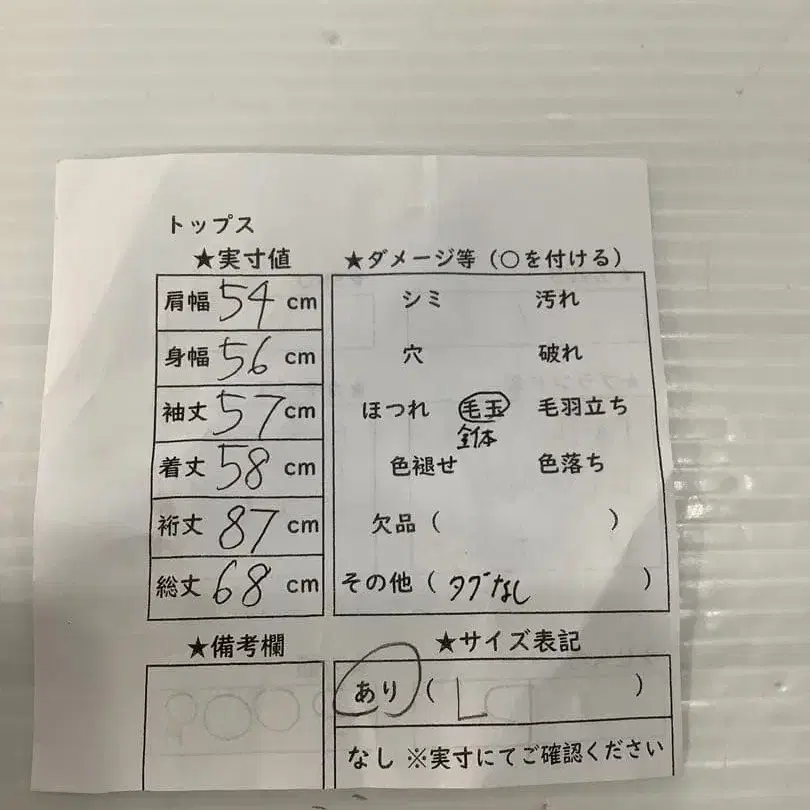 トップス
★実寸値
肩幅 54 cm
身幅 56 cm
袖丈 57 cm
着丈 58 cm
裄丈 87 cm
総丈 68 cm
★ダメージ等（○を付ける）
シミ 汚れ
穴 破れ
ほつれ 毛玉 毛羽立ち
全体
色褪せ 色落ち
欠品（ ）
その他（タグなし ）
★備考欄
★サイズ表記
あり（ L ）
なし ※実寸にてご確認ください